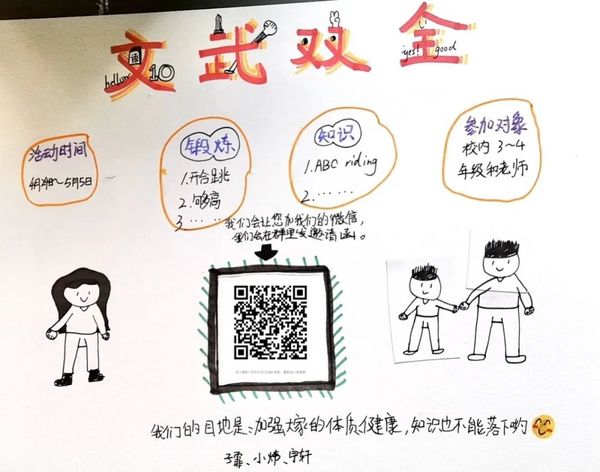 文武双全
hello
10
yes!
good
活动时间
4月24日～5月5日
锻炼
1.开合跳
2.够高
3.……
知识
1.ABC riding
2.……
参加对象
校内3~4
年级和老师
我们会让您加我们的微信,
我们会在群里发邀请函。
我们的目地是:加强大家的体质健康,知识也不能落下哟